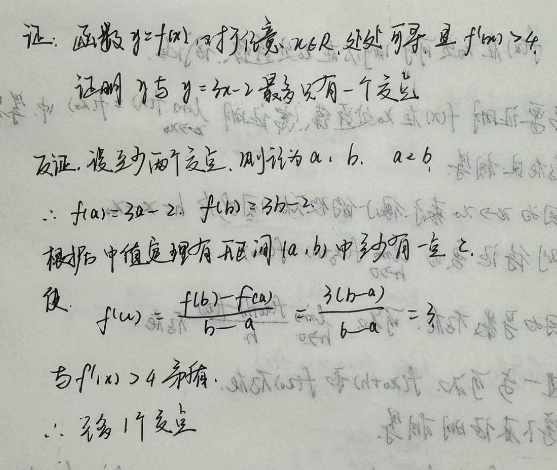 证: 函数y=f(x), 对于任意x∈R, 处处可导 且 f'(x)>4,
证明 y与 y=3x-2 最多只有一个交点
反证. 设至少两个交点, 则设为 a, b. a<b,
∴ f(a)=3a-2, f(b)=3b-2
根据中值定理有开区间(a,b)中至少有一点 c.
使
f'(c) = \frac{f(b)-f(a)}{b-a} = \frac{3(b-a)}{b-a} = 3
与f'(x)>4矛盾.
∴ 至多1个交点